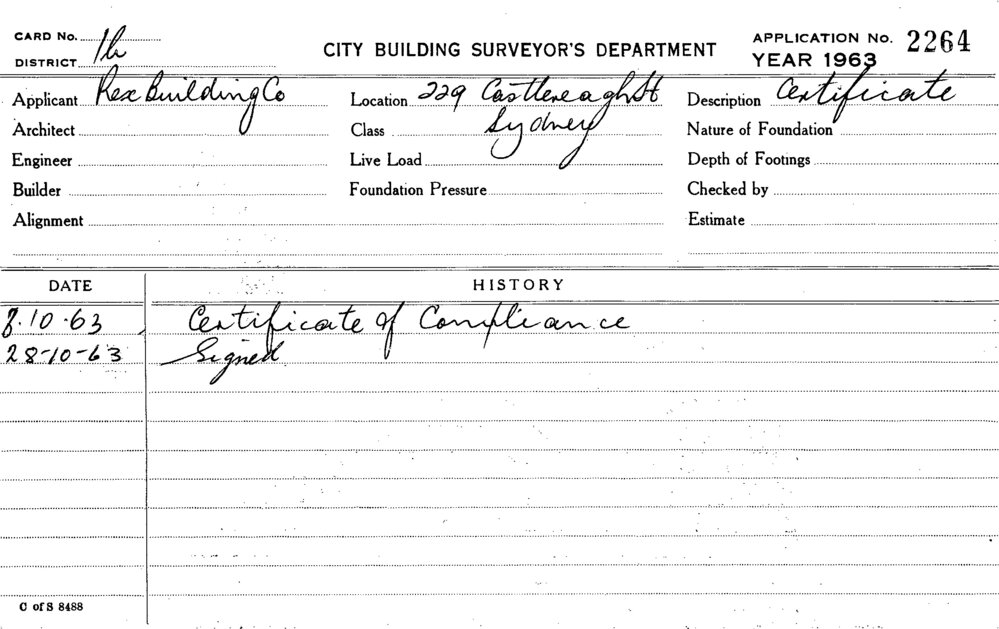 CARD No.
CITY BUILDING SURVEYOR'S DEPARTMENT
APPLICATION No. 2264
DISTRICT
YEAR 1963
Applicant Rex Building Co
Location 229 Castlereagh St
Description Certificate
Architect
Class Sydney
Nature of Foundation
Engineer
Live Load
Depth of Footings
Builder
Foundation Pressure
Checked by
Alignment
Estimate
DATE
HISTORY
8.10.63 Certificate of Compliance
28-10-63 Signed
C of S 8488